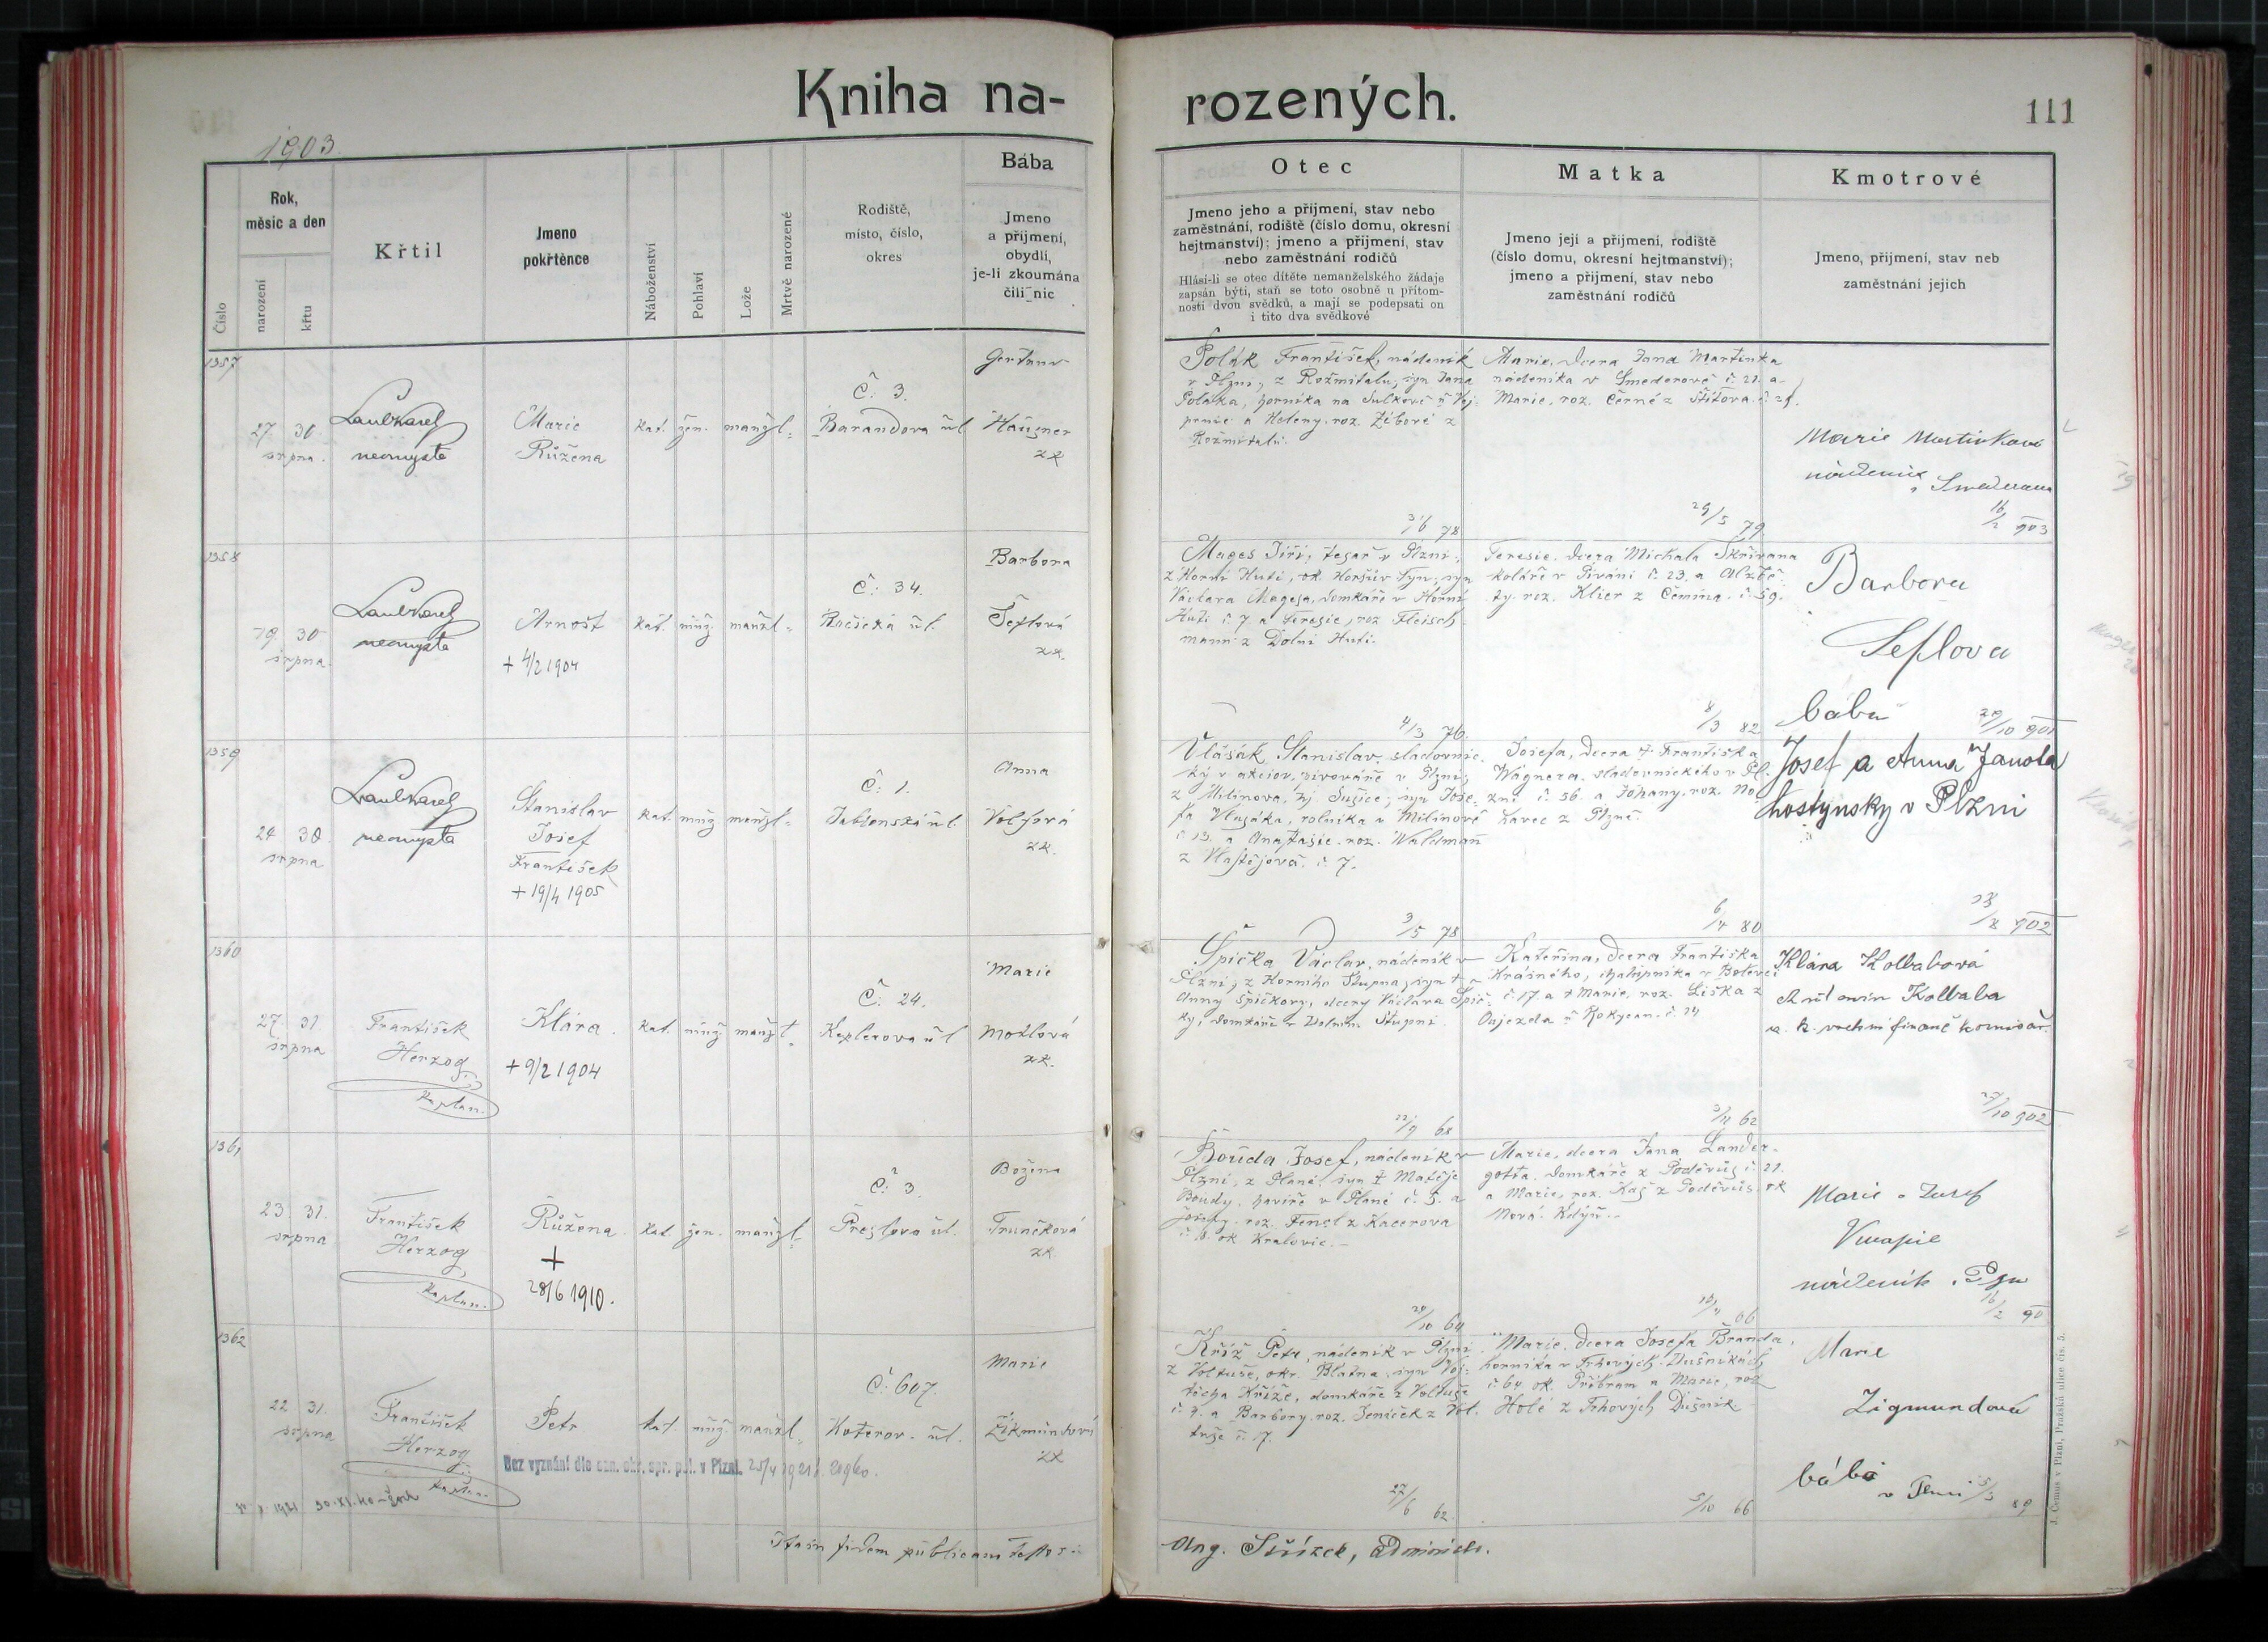 Kniha na-
rozených.
111
1903.
Číslo
Rok,
měsíc a den
narození
křtu
Křtil
Jmeno
pokřtěnce
Náboženství
Pohlaví
Lože
Mrtvě narozené
Rodiště,
místo, číslo,
okres
Bába
Jmeno
a příjmení,
obydlí,
je-li zkoumána
čili nic
Otec
Jmeno jeho a příjmení, stav nebo
zaměstnání, rodiště (číslo domu, okresní
hejtmanství); jmeno a příjmení, stav
nebo zaměstnání rodičů
Hlásí-li se otec dítěte nemanželského žádaje
zapsán býti, staň se toto osobně u přítom-
nosti dvou svědků, a mají se podepsati on
i tito dva svědkové
Matka
Jmeno její a příjmení, rodiště
(číslo domu, okresní hejtmanství);
jmeno a příjmení, stav nebo
zaměstnání rodičů
Kmotrové
Jmeno, příjmení, stav neb
zaměstnání jejich
1357
27. 30.
srpna.
neomysta
Marie
Růžena
kat. žen. manžl.
Č: 3.
Barandova ul.
Häusner
zk.
Polák František, nádeník
v Plzni, z Rožmitálu, syn Jana
Poláka, horníka na Sulkově u Vej-
prnic a Heleny, roz. Zíbové z
Rožmitálu.
3/6 78
Marie, dcera Jana Martínka
nádeníka v Smederově č. 21. a
Marie, roz. Černé z Štítova. č. 29.
29/5 79.
Marie Martinková
nádenik
16/2 903
1358
19. 30
srpna.
neomysta
Arnošt
+ 4/2 1904
kat. muž. manžl.
Č: 34.
Barbora
Šeflová
zk.
Mages Jiří, tesař v Plzni,
z Horní Huti, ok. Horšův Týn, syn
Václava Magesa, domkáře v Horní
Huti č. 7 a Teresie, roz. Fleisch-
mann z Dolní Huti.
4/3 76.
Teresie, dcera Michala Skřivana
koláře v Pivani č. 23. a Alžbě-
ty, roz. Klier z Čemína. č. 59.
8/3 82
Barbora
Seflova
bába
29/10 901
1359
24 30.
srpna
neomysta
Stanislav
Josef
František
+ 19/4 1905
kat. muž. manžl.
Č: 1.
Jablonská ul.
Anna
Volfová
zk.
Vlášák Stanislav, sladovnic-
ký v akciov. pivováře v Plzni,
z Milínova, hj. Sušice, syn Jose-
fa Vlasáka, rolníka v Milínově
č. 13. a Anastasie, roz. Waldmann
z Vlastějova. č. 7.
3/5 78
Josefa, dcera + Františka
Wágnera, sladovnického v Pl-
zni č. 56. a Johany, roz. No-
havec z Plzně
6/4 80
Josef a Anna Janota
hostynsky v Plzni
28/8 902
1360
27. 31.
srpna
František
Herzog
kaplan.
Klára.
+ 9/2 1904
kat. manžl.
Č: 24.
Keplerova ul
Marie
Motlová
zk.
Špička Václav, nádeník v
Plzni, z Horního Stupna, syn +
Anny Špičkovy, dcery Václava Špič-
ky, domkáře v Horním Stupni.
22/9 68
Kateřina, dcera Františka
Krásného, chalupníka v Bolevci
č. 17. a + Marie, roz. Liška z
Oujezda u Rokycan. č. 24
3/11 62
Klára Kolbabová
Antonin Kolbaba
c. k. vrchní finanč komisař.
27/10 902
1361
23. 31.
srpna
František
Herzog
kaplan.
Růžena
+
28/6 1910.
kat. žen. manžl.
Č: 3.
Preslova ul.
Božena
Trunečková
zk.
Bouda Josef, nádeník v
Plzni, z Plané, syn + Matěje
Boudy, havíře v Plané č. 5. a
Josefy, roz. Fencl z Kacerova
č. 8. ok Kralovic.
29/10 64
Marie, dcera Jana Lander-
gotta, domkáře z Poděvůs č. 21.
a Marie, roz. Kas z Poděvůs, ok
Nová Kdýň.
Marie a Josef
nádenik
16/2 90
1362
22. 31.
srpna
František
Herzog
kaplan.
Petr
kat. muž. manžl.
Č: 607.
Koterov. ul.
Marie
Zikmundová
zk
Bez vyznání dle ozn. okr. spr. pol. v Plzni. 25/4 1921
Kříž Petr, nádeník v Plzni
z Voltuše, okr. Blatna, syn Voj-
těcha Kříže, domkáře z Voltuše
č. 7. a Barbory, roz. Jeníček z Vol-
tuše č. 7.
27/6 62.
Marie, dcera Josefa Branda,
horníka v Trhových Dušníkách
č. 64. ok. Příbram a Marie, roz
Holé z Trhových Dušník
5/10 66
Marie
Zigmundová
bába
v Plzni 5/3 89
Ita in fidem publicam testor:
Aug. Střízek, administr.
J. Císař v Plzni, Pražská ulice čís. 5.